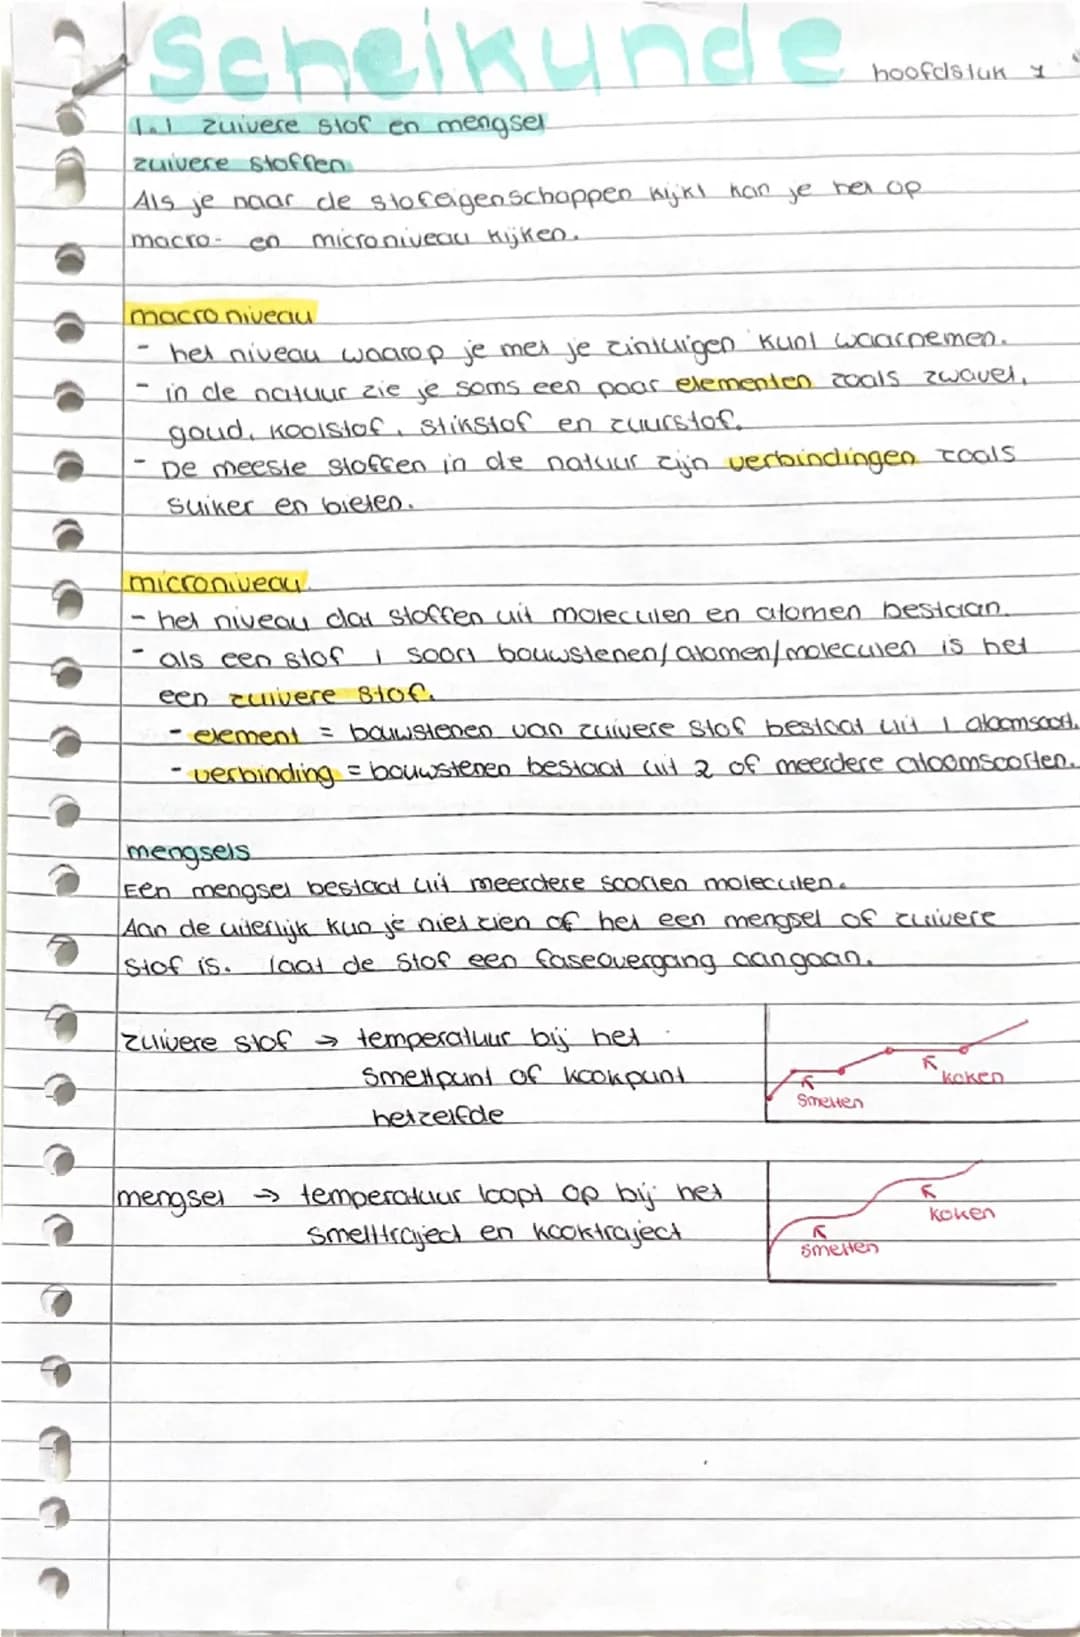 Scheikunde hoofdstuk 1
1.1 zuivere stof en mengsel
zuivere stoffen
Als je naar de stofeigenschappen kijkt kan je het op
macro- en microniveau kijken.
macroniveau
- het niveau waarop je met je zintuigen kunt waarnemen.
- in de natuur zie je soms een paar elementen zoals zwavel,
goud, koolstof, stikstof en zuurstof.
- De meeste stoffen in de natuur zijn verbindingen zoals
suiker en bieten.
microniveau.
- het niveau dat stoffen uit moleculen en atomen bestaan.
- als een stof 1 soort bouwstenen/atomen/moleculen is het
een zuivere stof.
- element = bouwstenen van zuivere stof bestaat uit 1 atoomsoort.
- verbinding = bouwstenen bestaat uit 2 of meerdere atoomsoorten.
mengsels
Een mengsel bestaat uit meerdere soorten moleculen.
Aan de uiterlijk kun je niet zien of het een mengsel of zuivere
stof is. laat de stof een faseovergang aangaan.
zuivere stof → temperatuur bij het
smeltpunt of kookpunt
hetzelfde
koken
smelten
mengsel → temperatuur loopt op bij het
smelttraject en kooktraject
koken
smelten